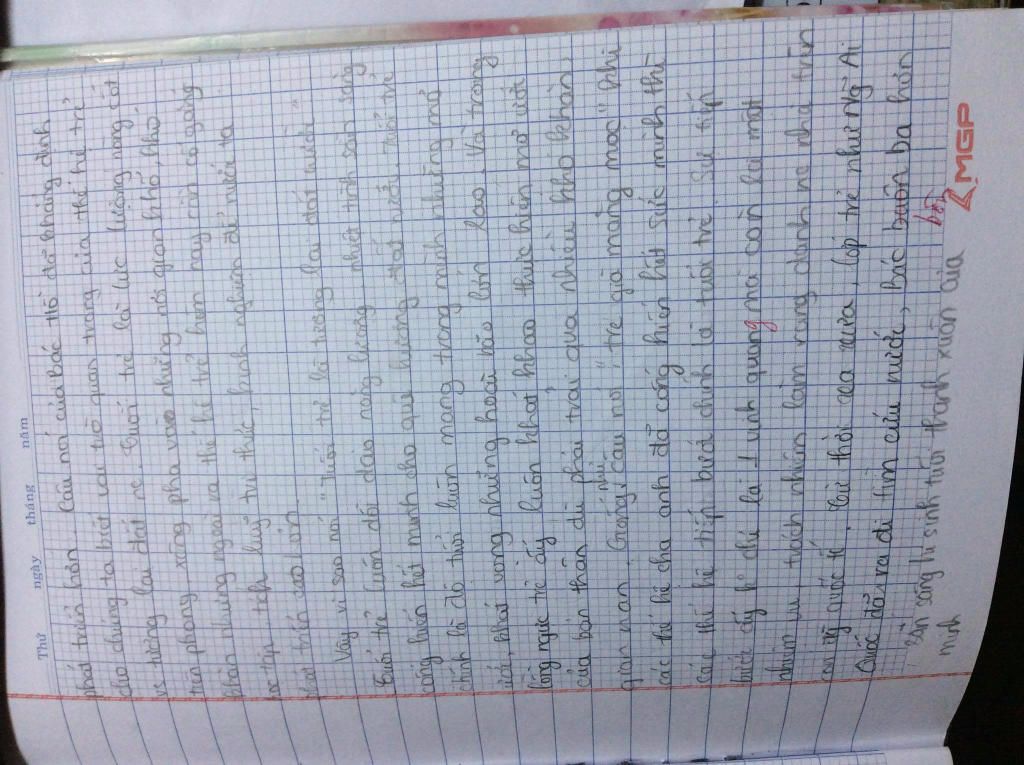 Thứ ngày tháng năm
phát triển hơn. Câu nói của bác Hồ đã khẳng định
cho chúng ta biết vai trò quan trọng của thế hệ trẻ
về tương lai đất nc. Tuổi trẻ là lực lượng nòng cốt
tiên phong xông pha vào những nơi gian khó, khó
khăn nhưng ngoài ra thế hệ trẻ hiện nay cần cố gắng
học tập tích luỹ tri thức, kinh nghiệm để nước ta
phát triển cao hơn.
Vậy vì sao nói "Tuổi trẻ là tương lai đất nước"
Tuổi trẻ luôn dồi dào năng lượng nhiệt tình sẵn sàng
cống hiến hết mình cho quê hương đất nước. Tuổi trẻ
chính là độ tuổi luôn mang trong mình những mơ
ước, khát vọng những hoài bão lớn lao. Và trong
lồng ngực trẻ ấy luôn khát khao thực hiện mơ ước
của bản thân dù phải trải qua nhiều khó khăn,
gian nan. Giống như câu nói "tre già măng mọc" khi
các thế hệ cha anh đã cống hiến hết sức mình thì
các thế hệ tiếp bước chính là tuổi trẻ. Sự tiếp
bước ấy k chỉ là 1 vinh quang mà còn là một
nhiệm vụ trách nhiệm làm rạng danh nc nhà trên
con đg quốc tế. Từ thời xa xưa, lớp trẻ như Ng~ Ái
Quốc đã ra đi tìm cứu nước, bác buôn ba hơn
bốn
sẵn sàng hi sinh tuổi thanh xuân của
mình
MGP